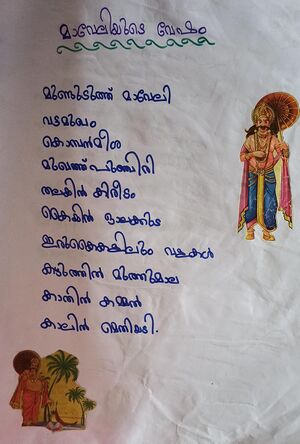 മാവേലിയുടെ വേഷം
മുണ്ടുടുത്ത് മാവേലി
വടമുഖം
കൊമ്പൻമീശ
മുഖത്ത് പുഞ്ചിരി
തലയിൽ കിരീടം
കൈയിൽ ഓലക്കുട
ഇരുകൈകളിലും വളകൾ
കഴുത്തിൽ മുത്തുമാല
കാതിൽ കമ്മൽ
കാലിൽ മെതിയടി.